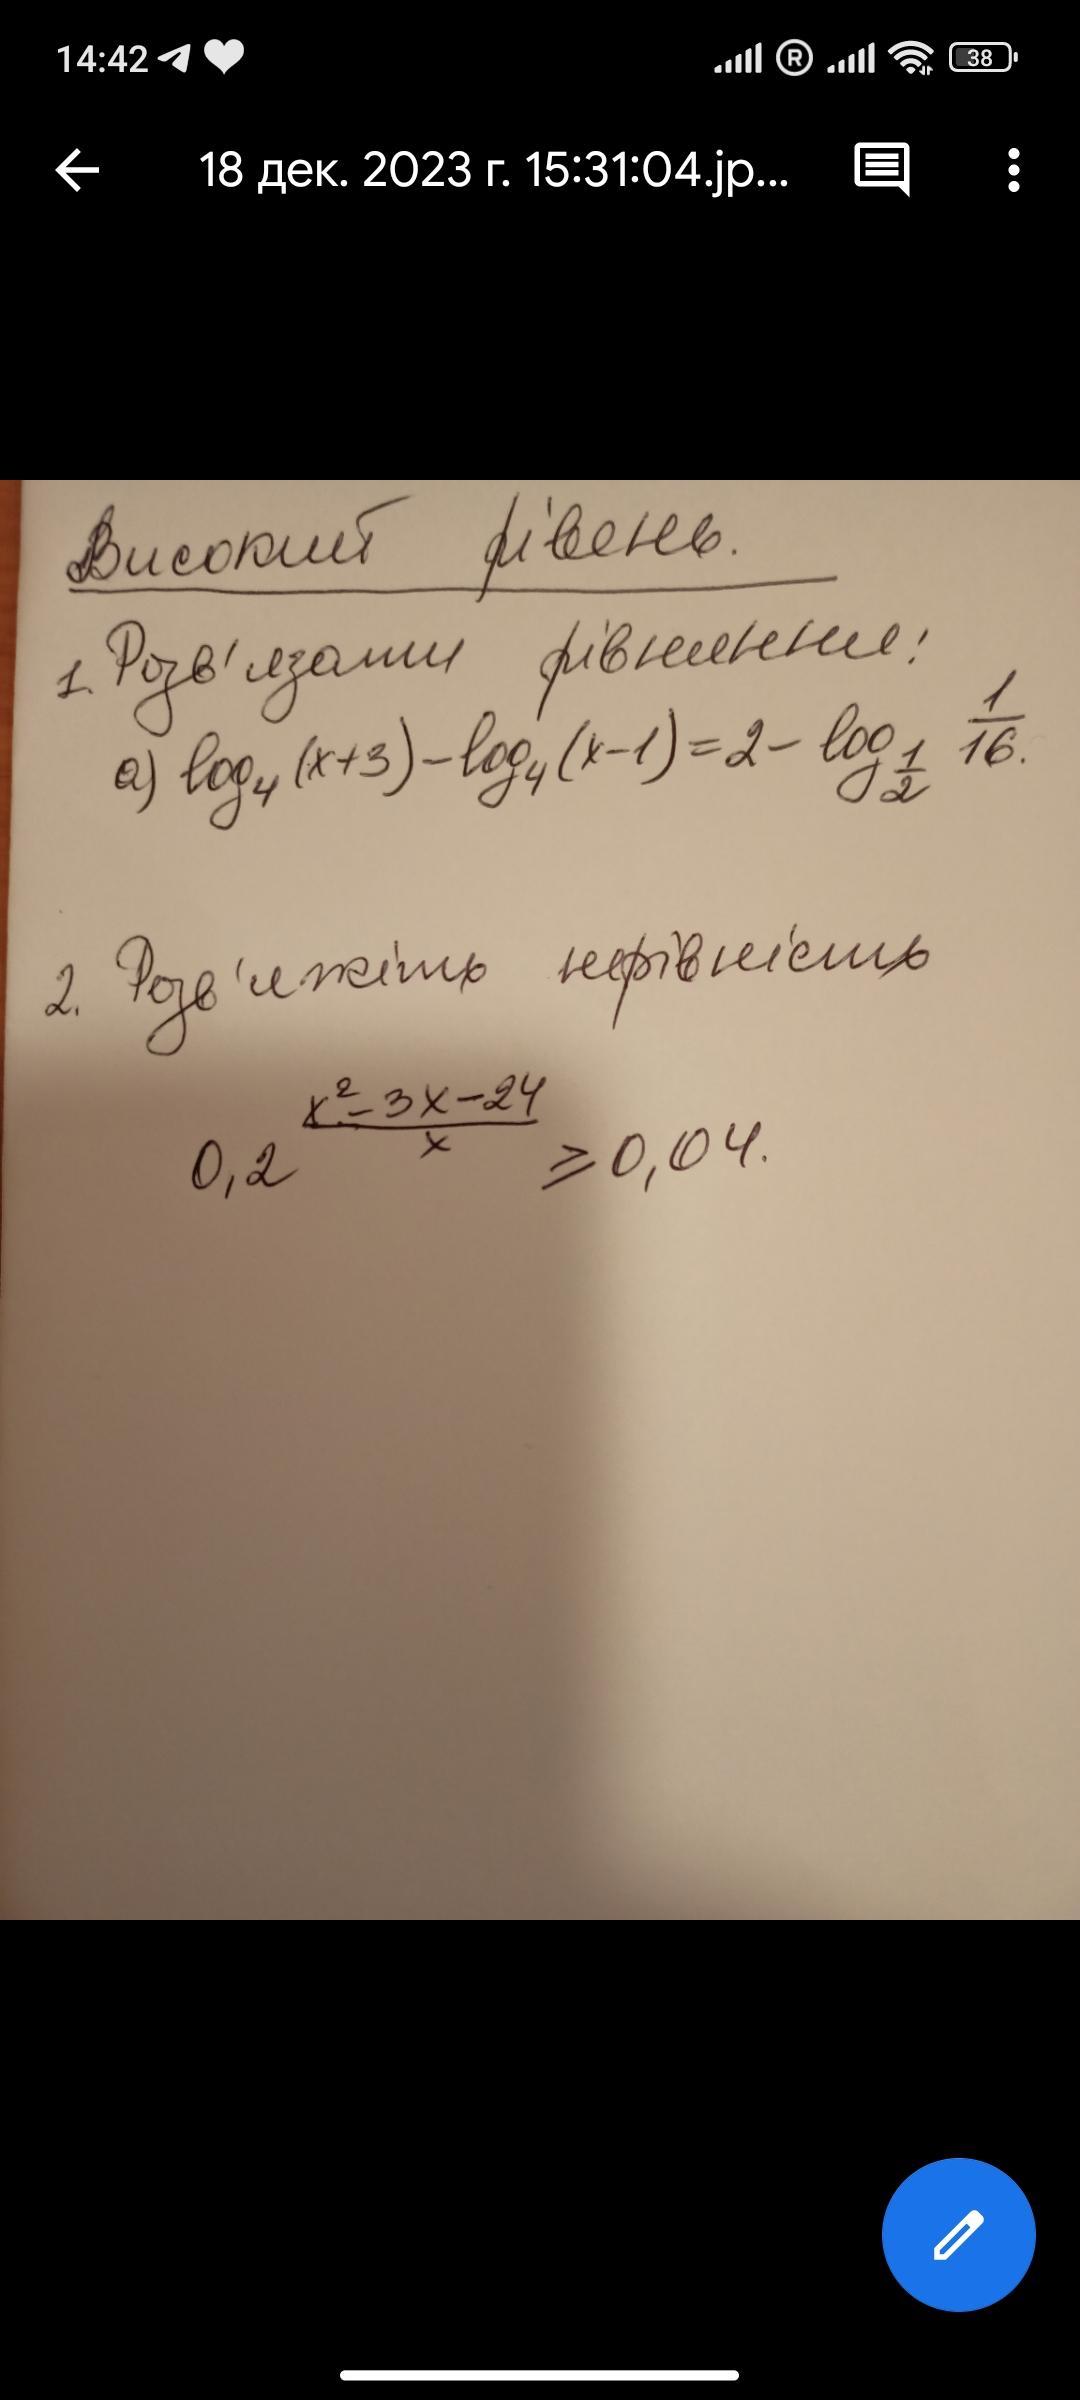 14:42 ® 38
18 дек. 2023 г. 15:31:04.jp...
Високий рівень.
1. Розв'язати рівняння:
а) log₄(x+3)-log₄(x-1)=2-log_{1/2} 1/16.
2. Розв'яжіть нерівність
0,2^{(x²-3x-24)/x} ⩾ 0,04.